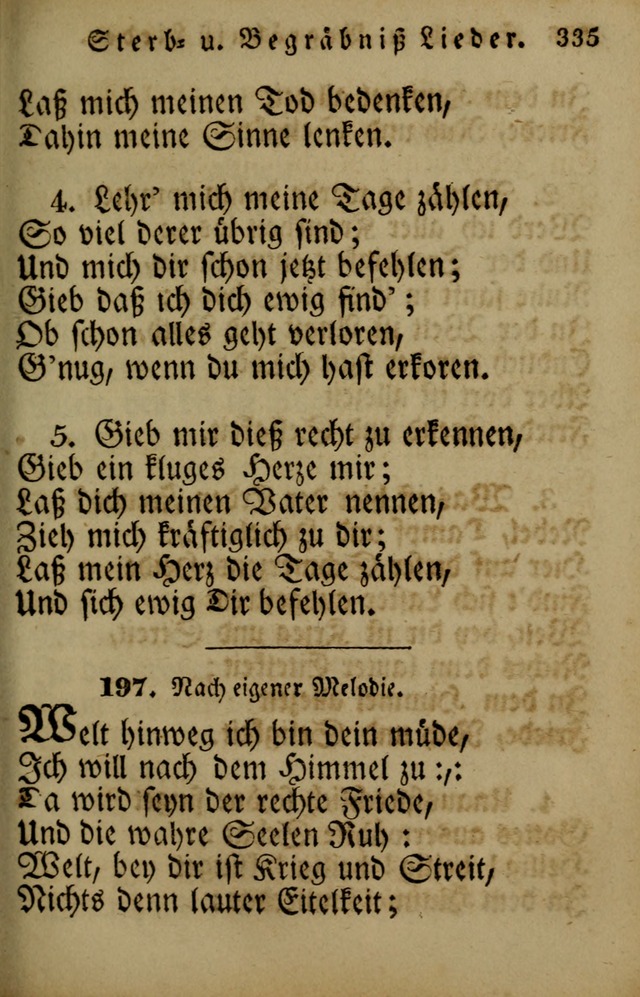 Sterb- u. Begräbniß Lieder. 335
Laß mich meinen Tod bedenken,
Dahin meine Sinne lenken.
4. Lehr' mich meine Tage zählen,
So viel derer übrig sind;
Und mich Dir schon jetzt befehlen;
Gieb daß ich dich ewig find';
Ob schon alles geht verloren,
G'nug, wenn du mich hast erkoren.
5. Gieb mir dieß recht zu erkennen,
Gieb ein kluges Herze mir;
Laß dich meinen Vater nennen,
Zieh mich kräftiglich zu dir;
Laß mein Herz die Tage zählen,
Und sich ewig Dir befehlen.
197. Nach eigener Melodie.
Welt hinweg ich bin dein müde,
Ich will nach dem Himmel zu :,:
Da wird seyn der rechte Friede,
Und die wahre Seelen Ruh :
Welt, bey dir ist Krieg und Streit,
Nichts denn lauter Eitelkeit;